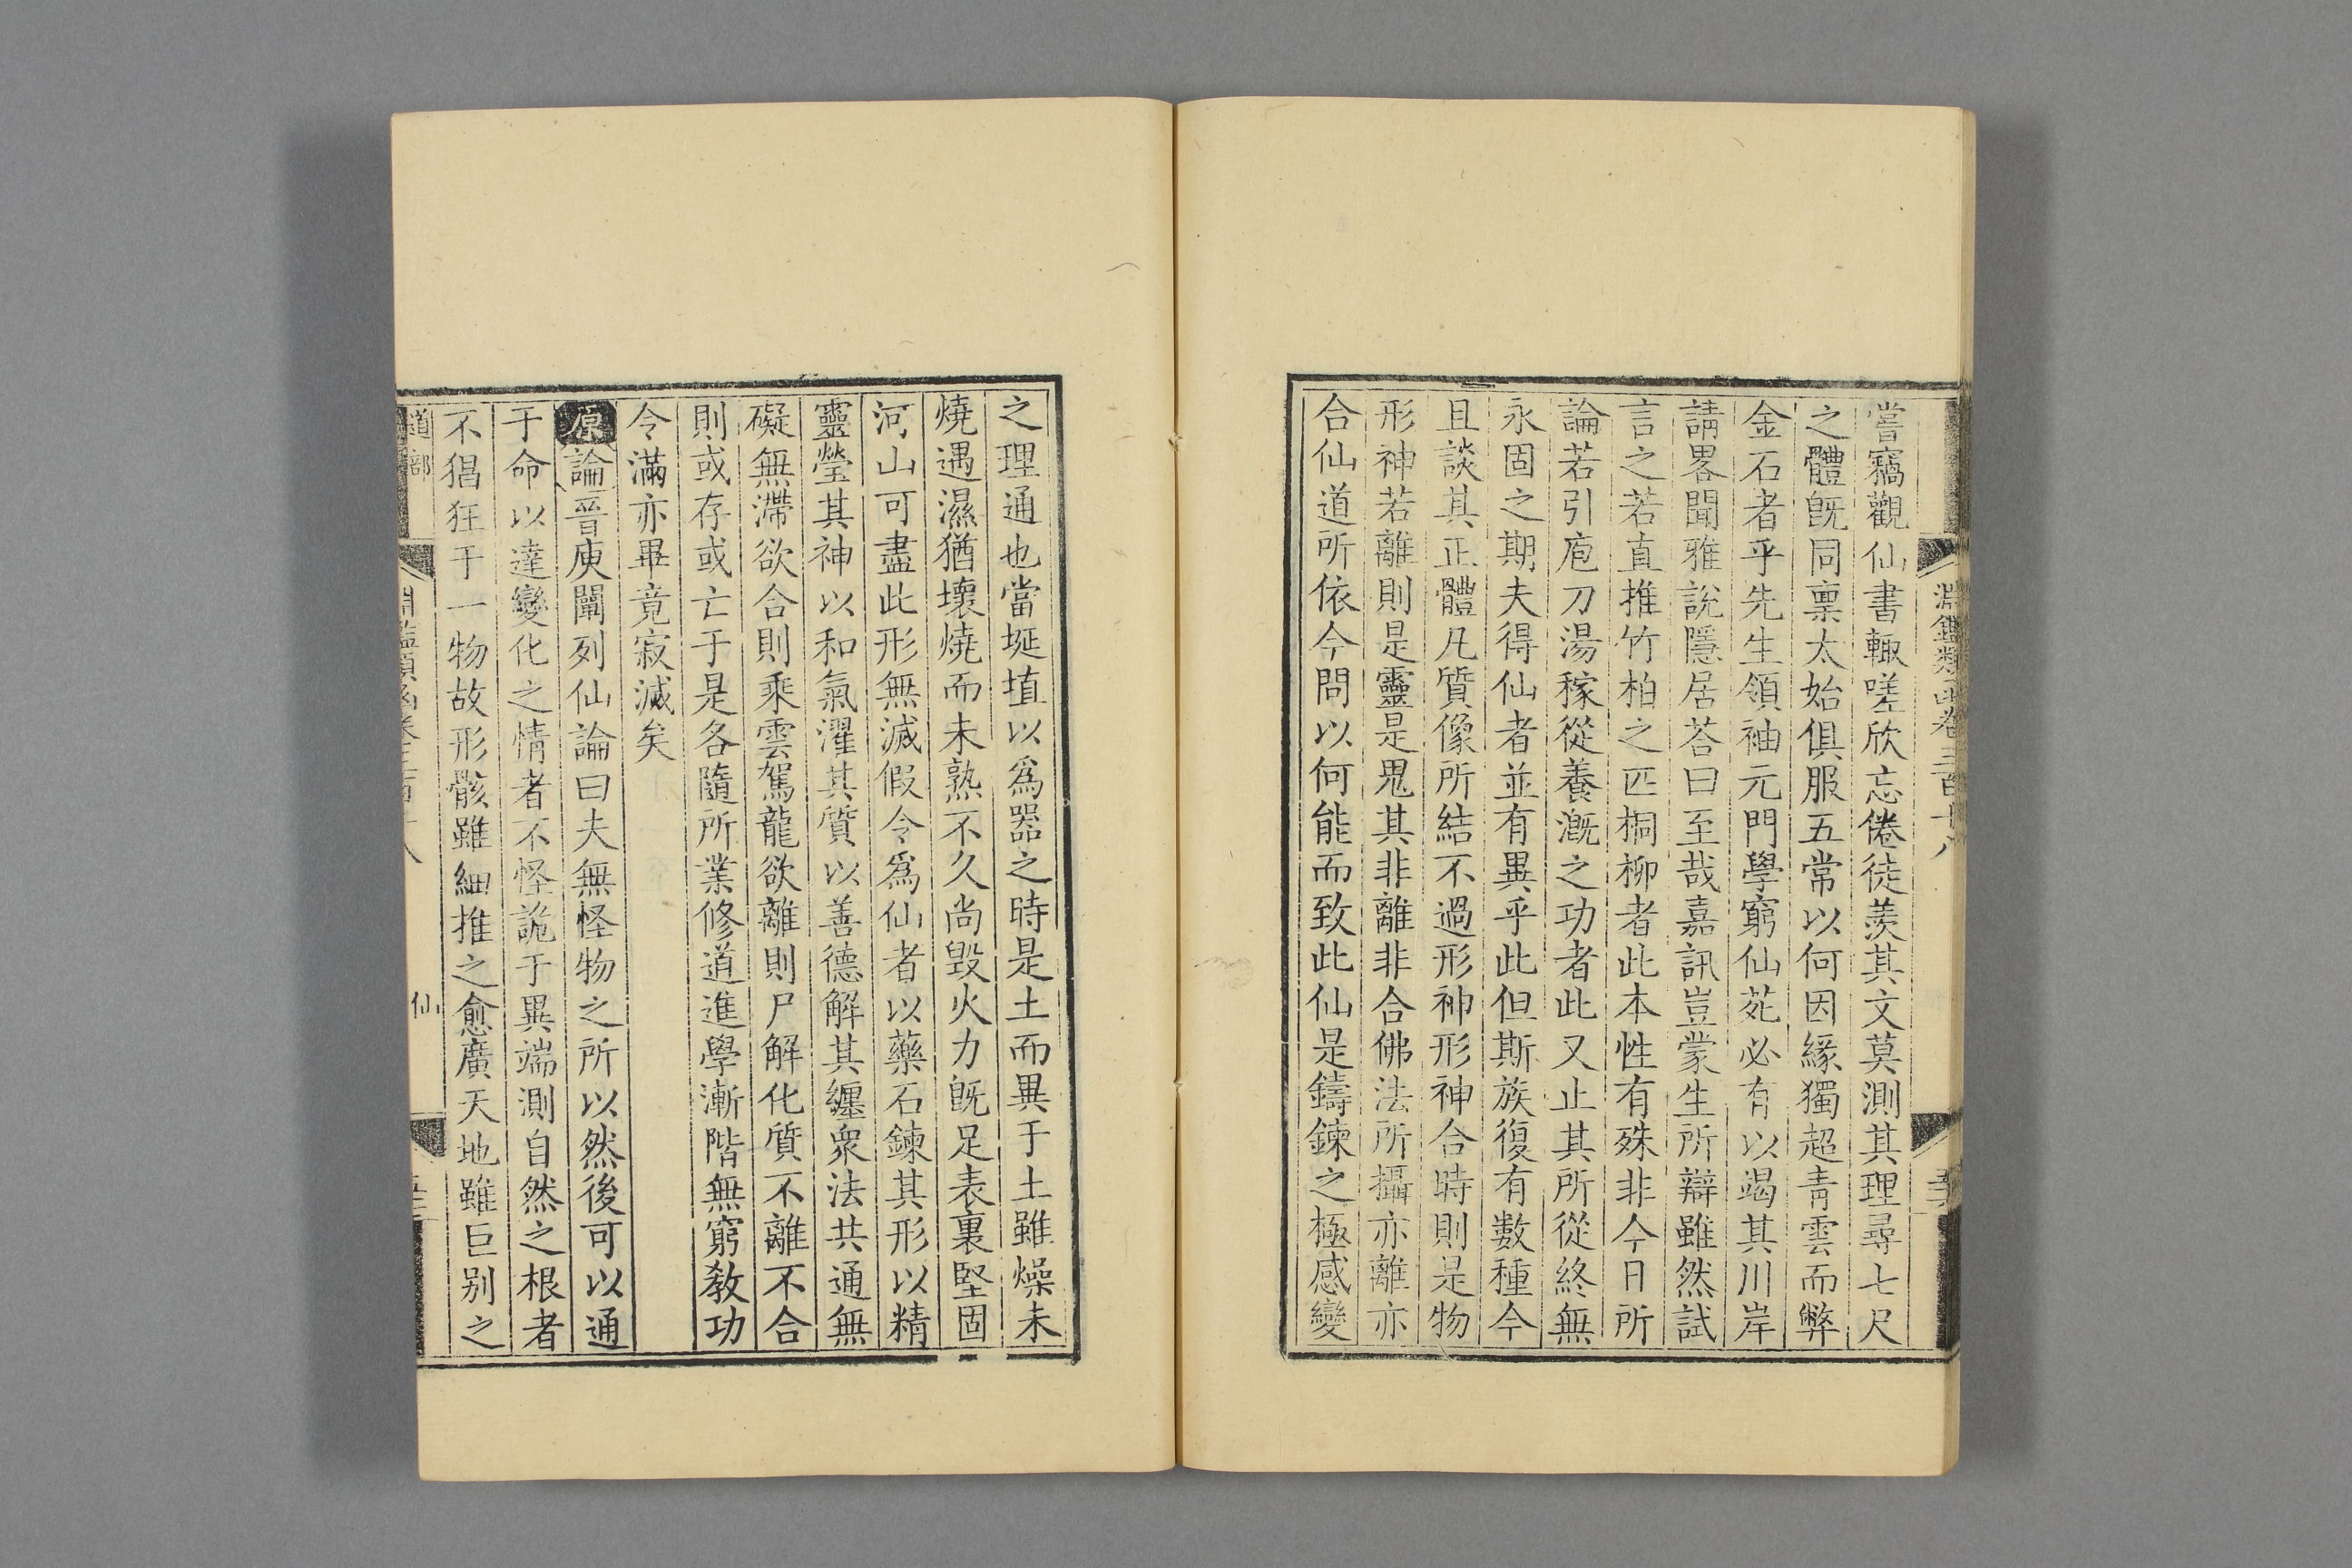 淵鑑類函卷三百十八
嘗竊觀仙書輙嗟欣忘倦徒羨其文莫測其理尋七尺
之體旣同稟太始俱服五常以何因緣獨超青雲而弊
金石者乎先生領袖元門學窮仙苑必有以竭其川岸
請畧聞雅說隱居荅曰至哉嘉訊豈蒙生所辯雖然試
言之若直推竹柏之匹桐柳者此本性有殊非今日所
論若引庖刀湯稼從養漑之功者此又止其所從終無
永固之期夫得仙者並有異乎此但斯族復有數種今
且談其正體凡質像所結不過形神形神合時則是物
形神若離則是靈是鬼其非離非合佛法所攝亦離亦
合仙道所依今問以何能而致此仙是鑄鍊之極感變
之理通也當埏埴以爲器之時是土而異于土雖燥未
燒遇濕猶壞燒而未熟不久尚毀火力旣足表裏堅固
河山可盡此形無滅假令爲仙者以藥石鍊其形以精
靈瑩其神以和氣濯其質以善德解其纏衆法共通無
礙無滯欲合則乘雲駕龍欲離則尸解化質不離不合
則或存或亡于是各隨所業修道進學漸階無窮敎功
令滿亦畢竟寂滅矣
原論晉庾闡列仙論曰夫無怪物之所以然後可以通
于命以達變化之情者不怪詭于異端測自然之根者
不猖狂于一物故形骸雖細推之愈廣天地雖巨别之
道部 淵鑑類函卷三百十八 仙